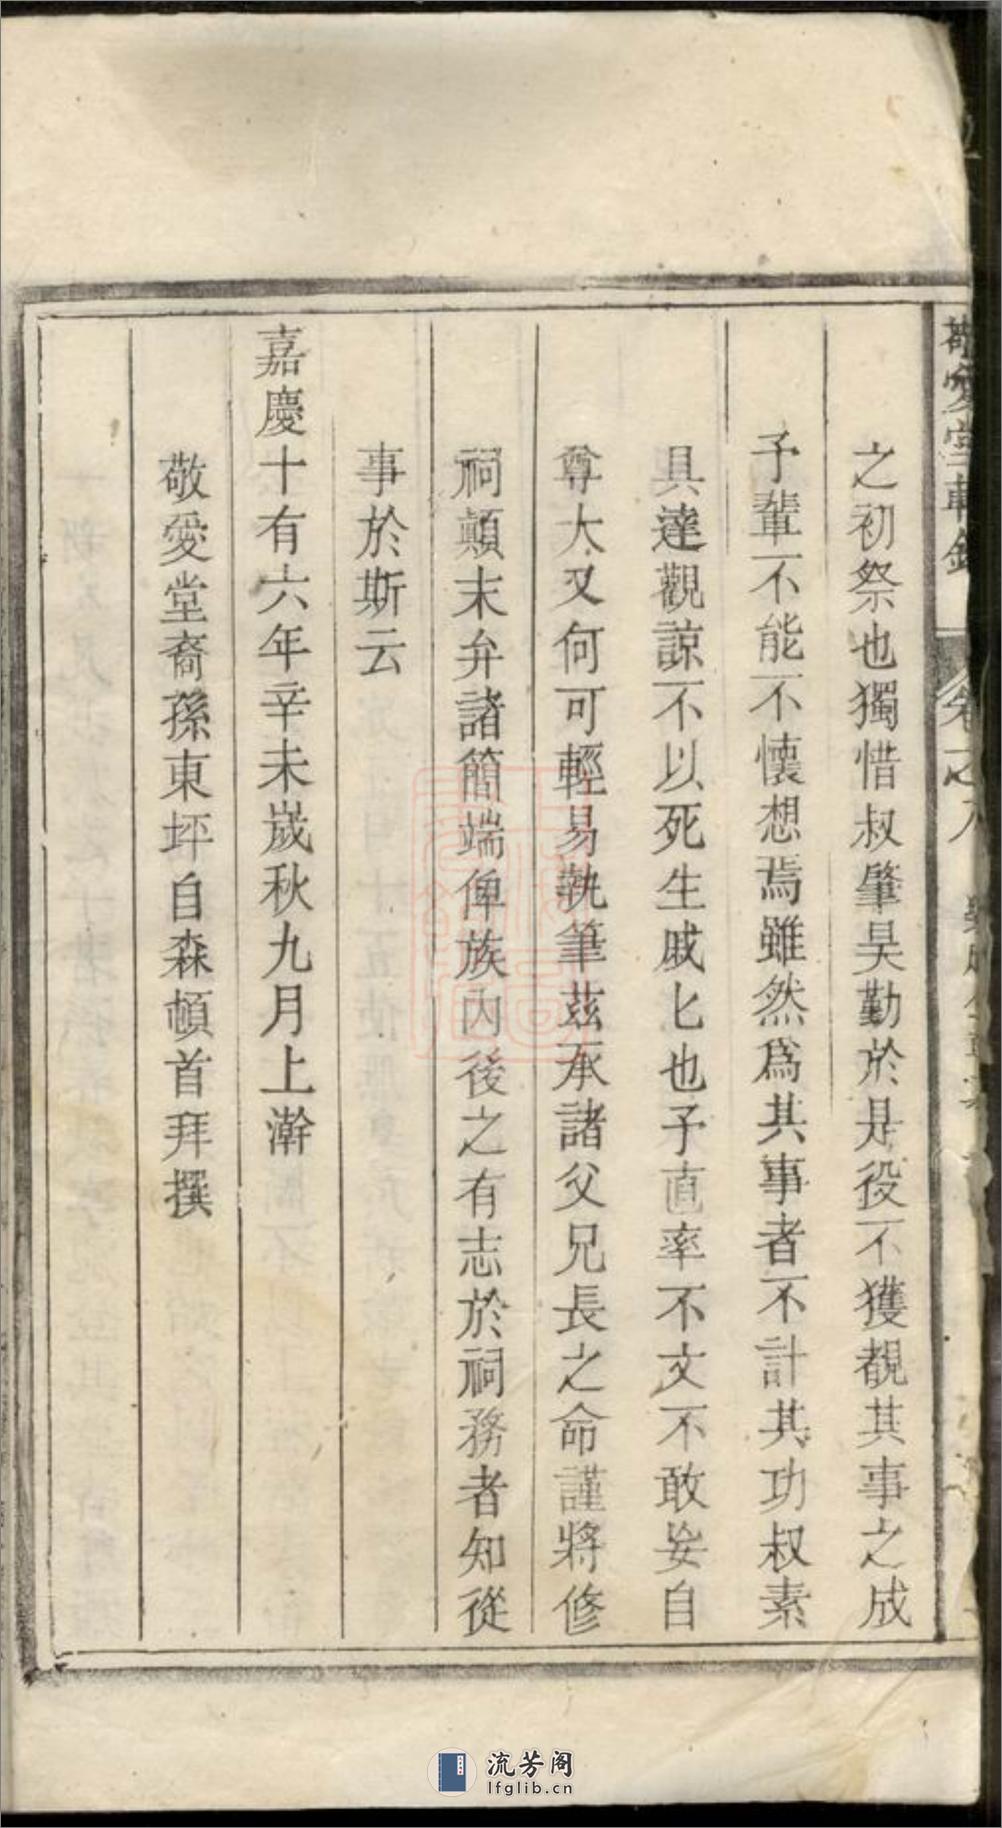 敬愛堂輯錄
卷之八
之初祭也獨惜叔肇昊勤於是役不獲覩其事之成
予輩不能不懷想焉雖然爲其事者不計其功叔素
具達觀諒不以死生戚匕也予直率不文不敢妄自
尊大又何可輕易執筆茲承諸父兄長之命謹將修
祠顛末弁諸簡端俾族內後之有志於祠務者知從
事於斯云
嘉慶十有六年辛未歲秋九月上澣
敬愛堂裔孫東坪自森頓首拜撰
流芳阁
lfglib.cn